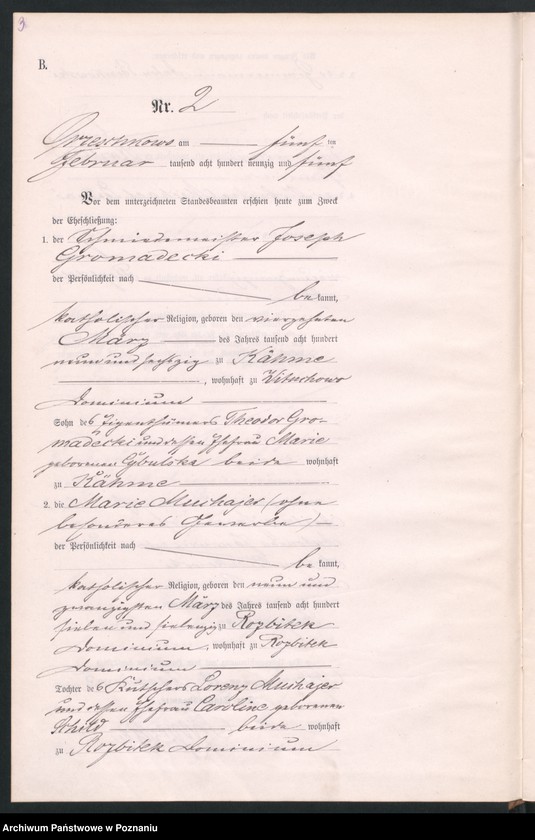 3
B.
Nr. 2
Grzeschkowo am fünf ten
Februar tausend acht hundert neunzig und fünf
Vor dem unterzeichneten Standesbeamten erschien heute zum Zweck
der Eheschließung:
1. der Schmiedemeister Joseph
Gromadecki
der Persönlichkeit nach
be kannt,
katholischer Religion, geboren den vierzehnten
März des Jahres tausend acht hundert
neun und sechzig zu Kähme
, wohnhaft zu Vituchowo
Dominium
Sohn des Eigenthümers Theodor Gro-
madecki und dessen Ehefrau Marie
geborenen Cybulska beide wohnhaft
zu Kähme
2. die Marie Muchajer (ohne
besonderes Gewerbe)
der Persönlichkeit nach
be kannt,
katholischer Religion, geboren den neun und
zwanzigsten März des Jahres tausend acht hundert
sieben und siebenzig zu Rozbitek
Dominium, wohnhaft zu Rozbitek
Dominium
Tochter des Kutschers Lorenz Muchajer
und dessen Ehefrau Caroline geborenen
Schild beide wohnhaft
zu Rozbitek Dominium
Archiwum Państwowe w Poznaniu